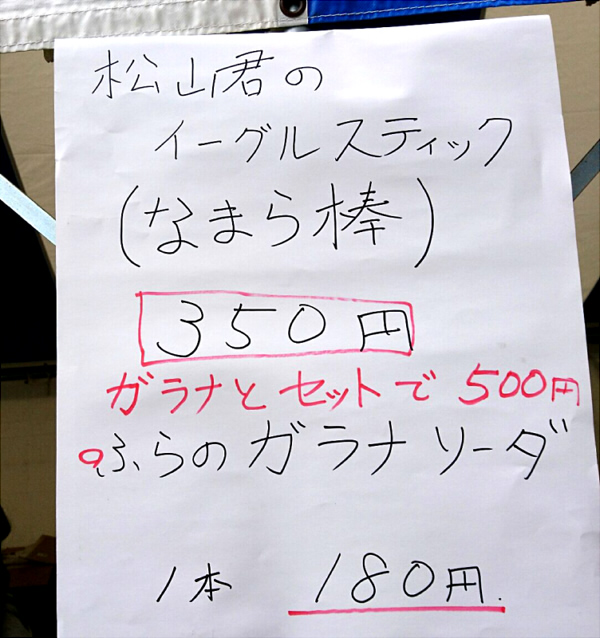 松山君の
イーグルスティック
(なまら棒)
350円
ガラナとセットで 500円
ふらのガラナソーダ
1本 180円.